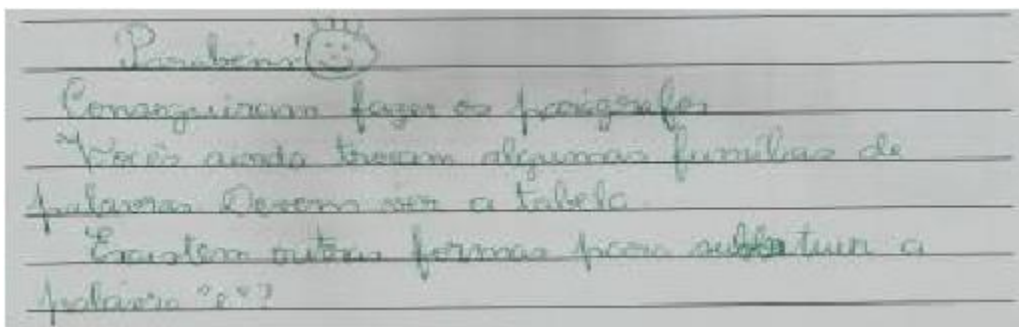 Parabéns!
Conseguiram fazer os parágrafos
Vocês ainda trocam algumas famílias de
palavras Devem ver a tabela.
Existem outras formas para substituir a
palavra "e"?